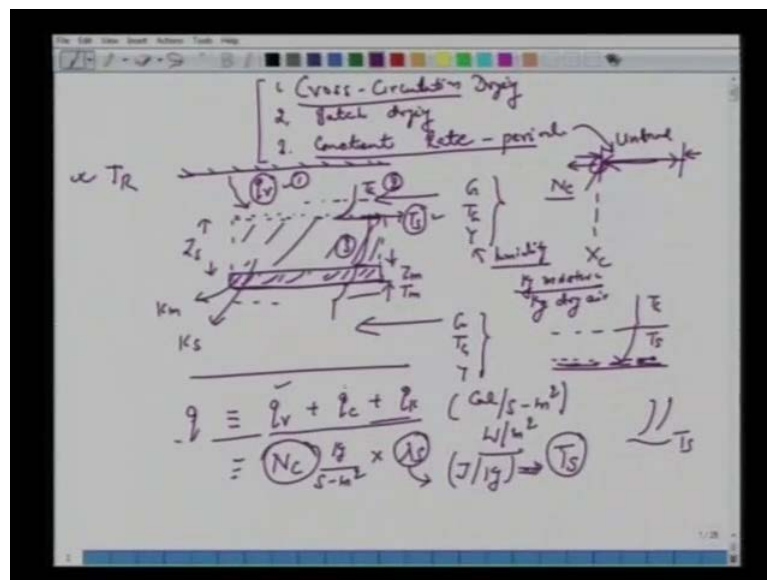 File Edit View Insert Actions Tools Help
1. Cross-Circulation Drying
2. Batch drying
3. Constant Rate-period
T_R
q_r ①
T_G ②
G
T_G
Y
humidity
kg moisture
kg dry air
N_C
X_C
T_S
Z_S
③
Z_m
T_m
K_m
K_S
G
T_G
Y
T_G
T_S
q ≡ q_r + q_c + q_k (Cal/s-m²)
W/m²
≡ N_C kg/s-m² × λ_S (J/kg) ⇒ T_S
T_S